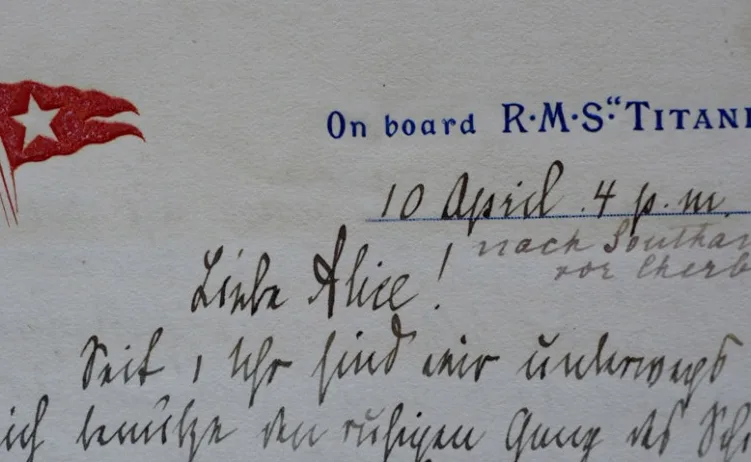 On board R·M·S·“TITANI
10 April 4 p.m.
nach Southa
vor Cherb
Liebe Alice!
Seit 1 Uhr sind wir unterwegs
ich benutze den ruhigen Gang des Sch